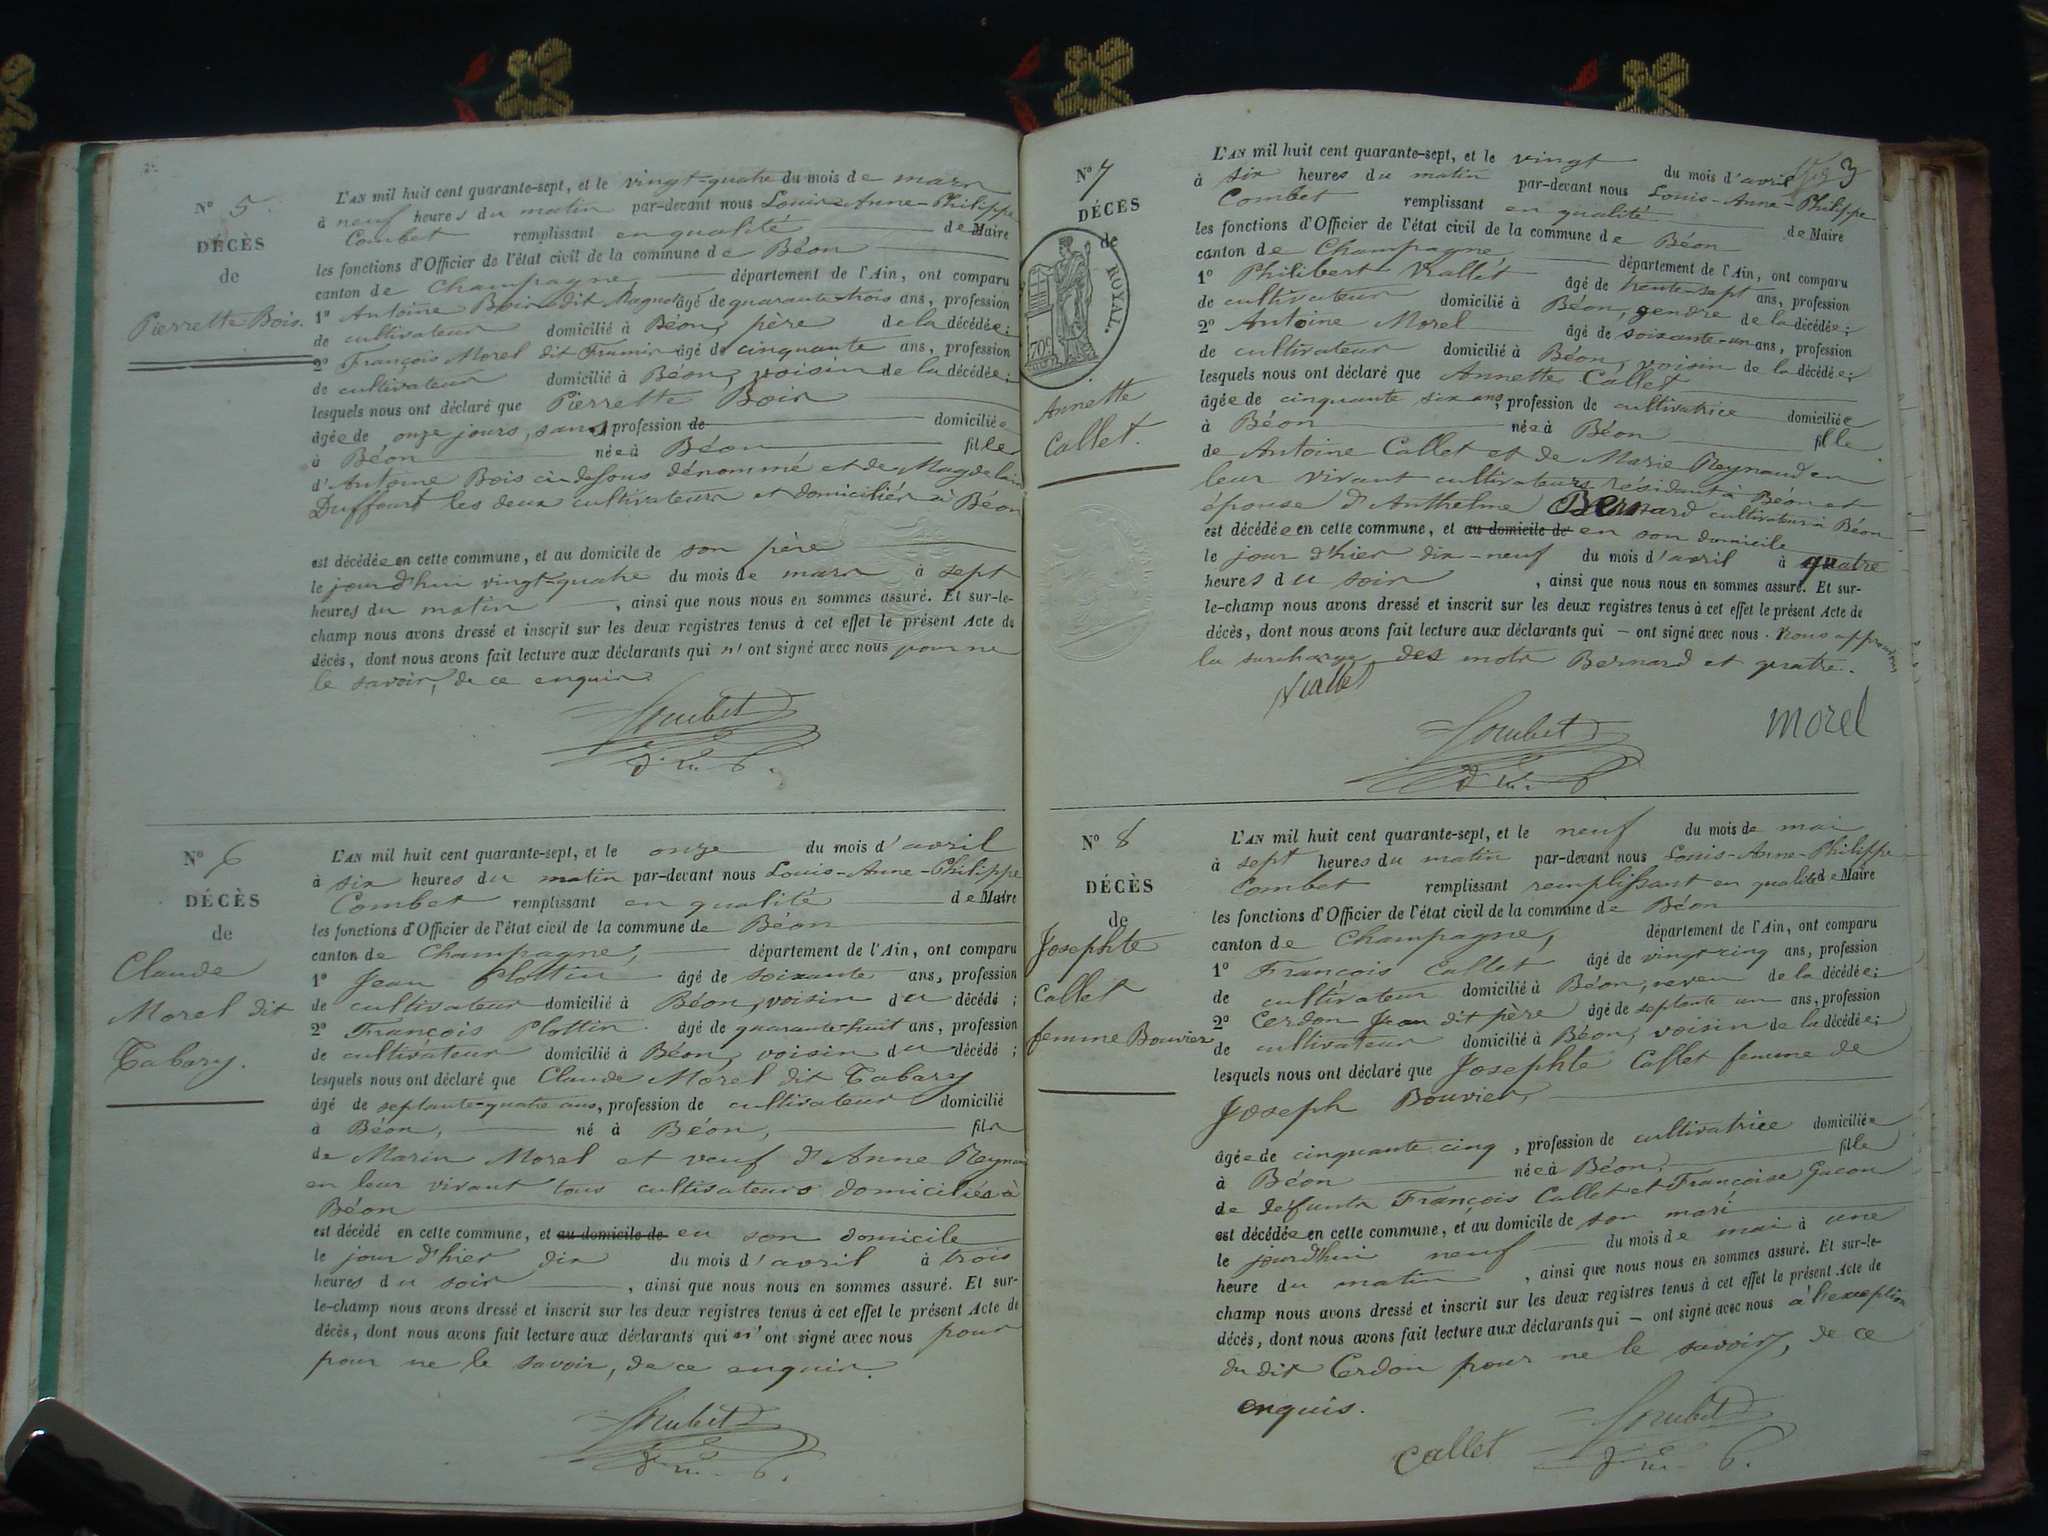 2
N° 5.
DÉCÈS
de
Pierrette Bois.
L'AN mil huit cent quarante-sept, et le vingt-quatre du mois de mars
à neuf heures du matin par-devant nous Louis-Anne-Philippe
Combet remplissant en qualité de Maire
les fonctions d'Officier de l'état civil de la commune de Béon
canton de Champagne, département de l'Ain, ont comparu
1° Antoine Bois dit Magnet âgé de quarante-trois ans, profession
de cultivateur domicilié à Béon, père de la décédée;
2° François Morel dit âgé de cinquante ans, profession
de cultivateur domicilié à Béon, voisin de la décédée;
lesquels nous ont déclaré que Pierrette Bois
âgée de onze jours, sans profession de domiciliée
à Béon née à Béon fille
d'Antoine Bois ci dessus dénommé et de Magdelain
Duffourt les deux cultivateurs et domiciliés à Béon
est décédée en cette commune, et au domicile de son père
le jour d'hui vingt-quatre du mois de mars à sept
heures du matin, ainsi que nous nous en sommes assuré. Et sur-le-
champ nous avons dressé et inscrit sur les deux registres tenus à cet effet le présent Acte de
décès, dont nous avons fait lecture aux déclarants qui n'ont signé avec nous pour ne
le savoir, de ce enquis.
Combet
N° 6
DÉCÈS
de
Claude
Morel dit
Tabary.
L'AN mil huit cent quarante-sept, et le onze du mois d'avril
à six heures du matin par-devant nous Louis-Anne-Philippe
Combet remplissant en qualité de Maire
les fonctions d'Officier de l'état civil de la commune de Béon
canton de Champagne, département de l'Ain, ont comparu
1° Jean Plottin âgé de soixante ans, profession
de cultivateur domicilié à Béon, voisin du décédé;
2° François Plottin âgé de quarante-huit ans, profession
de cultivateur domicilié à Béon, voisin du décédé;
lesquels nous ont déclaré que Claude Morel dit Tabary
âgé de septante-quatre ans, profession de cultivateur domicilié
à Béon, né à Béon, fils
de Marin Morel et veuf d'Anne Reynau
en leur vivant tous cultivateurs domiciliés à
Béon
est décédé en cette commune, et au domicile de en son domicile
le jour d'hier dix du mois d'avril à trois
heures du soir, ainsi que nous nous en sommes assuré. Et sur-
le-champ nous avons dressé et inscrit sur les deux registres tenus à cet effet le présent Acte de
décès, dont nous avons fait lecture aux déclarants qui n'ont signé avec nous pour
pour ne le savoir, de ce enquis.
Combet
3
N° 7
DÉCÈS
de
ROYAL.
Annette
Callet.
L'AN mil huit cent quarante-sept, et le vingt du mois d'avril
à six heures du matin par-devant nous Louis-Anne-Philippe
Combet remplissant en qualité de Maire
les fonctions d'Officier de l'état civil de la commune de Béon
canton de Champagne département de l'Ain, ont comparu
1° Philibert Viallet âgé de trente-sept ans, profession
de cultivateur domicilié à Béon, gendre de la décédée;
2° Antoine Morel âgé de soixante-un ans, profession
de cultivateur domicilié à Béon, voisin de la décédée;
lesquels nous ont déclaré que Annette Callet
âgée de cinquante six ans, profession de cultivatrice domiciliée
à Béon née à Béon fille
de Antoine Callet et de Marie Reynaud en
leur vivant cultivateurs résidant à Béon et
épouse d'Anthelme Bernard cultivateur à Béon
est décédée en cette commune, et au domicile de en son domicile
le jour d'hier dix-neuf du mois d'avril à quatre
heures du soir, ainsi que nous nous en sommes assuré. Et sur-
le-champ nous avons dressé et inscrit sur les deux registres tenus à cet effet le présent Acte de
décès, dont nous avons fait lecture aux déclarants qui — ont signé avec nous. Nous approuvons
la surcharge des mots Bernard et quatre.
Viallet
Combet
morel
N° 8
DÉCÈS
de
Josephte
Callet
femme Bouvier
L'AN mil huit cent quarante-sept, et le neuf du mois de mai
à sept heures du matin par-devant nous Louis-Anne-Philippe
Combet remplissant remplissant en qualité de Maire
les fonctions d'Officier de l'état civil de la commune de Béon
canton de Champagne, département de l'Ain, ont comparu
1° François Callet âgé de vingt-cinq ans, profession
de cultivateur domicilié à Béon, neveu de la décédée;
2° Cerdon Jean dit père âgé de septante un ans, profession
de cultivateur domicilié à Béon, voisin de la décédée;
lesquels nous ont déclaré que Josephte Callet femme de
Joseph Bouvier,
âgée de cinquante cinq, profession de cultivatrice domiciliée
à Béon née à Béon, fille
de défunts François Callet et Françoise Gacon
est décédée en cette commune, et au domicile de son mari
le jourd'hui neuf du mois de mai à une
heure du matin, ainsi que nous nous en sommes assuré. Et sur-le-
champ nous avons dressé et inscrit sur les deux registres tenus à cet effet le présent Acte de
décès, dont nous avons fait lecture aux déclarants qui — ont signé avec nous à l'exception
du dit Cerdon pour ne le savoir, de ce
enquis.
Callet
Combet